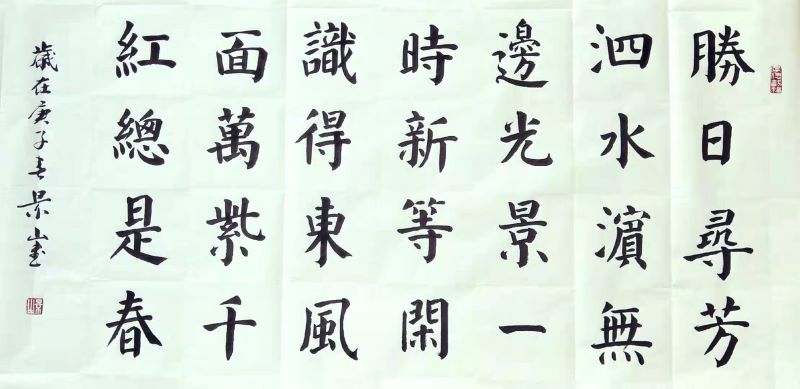 勝日尋芳
泗水濱無
邊光景一
時新等閑
識得東風
面萬紫千
紅總是春
歲在庚子春景山書